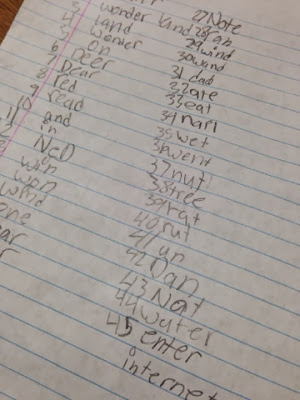 3 wonder kind
4 land
5 wonder
6 on
7 Deer
8 Dear
9 red
10 read
11 and
2 in
3 NeD
win
won
wind
one
ear
27 Note
28 ran
29 wind
30 wand
31 dad
32 are
33 eat
34 nari
35 wet
36 went
37 nut
38 tree
39 rat
40 rut
41 an
42 Dan
43 Nat
44 water
45 enter
internet